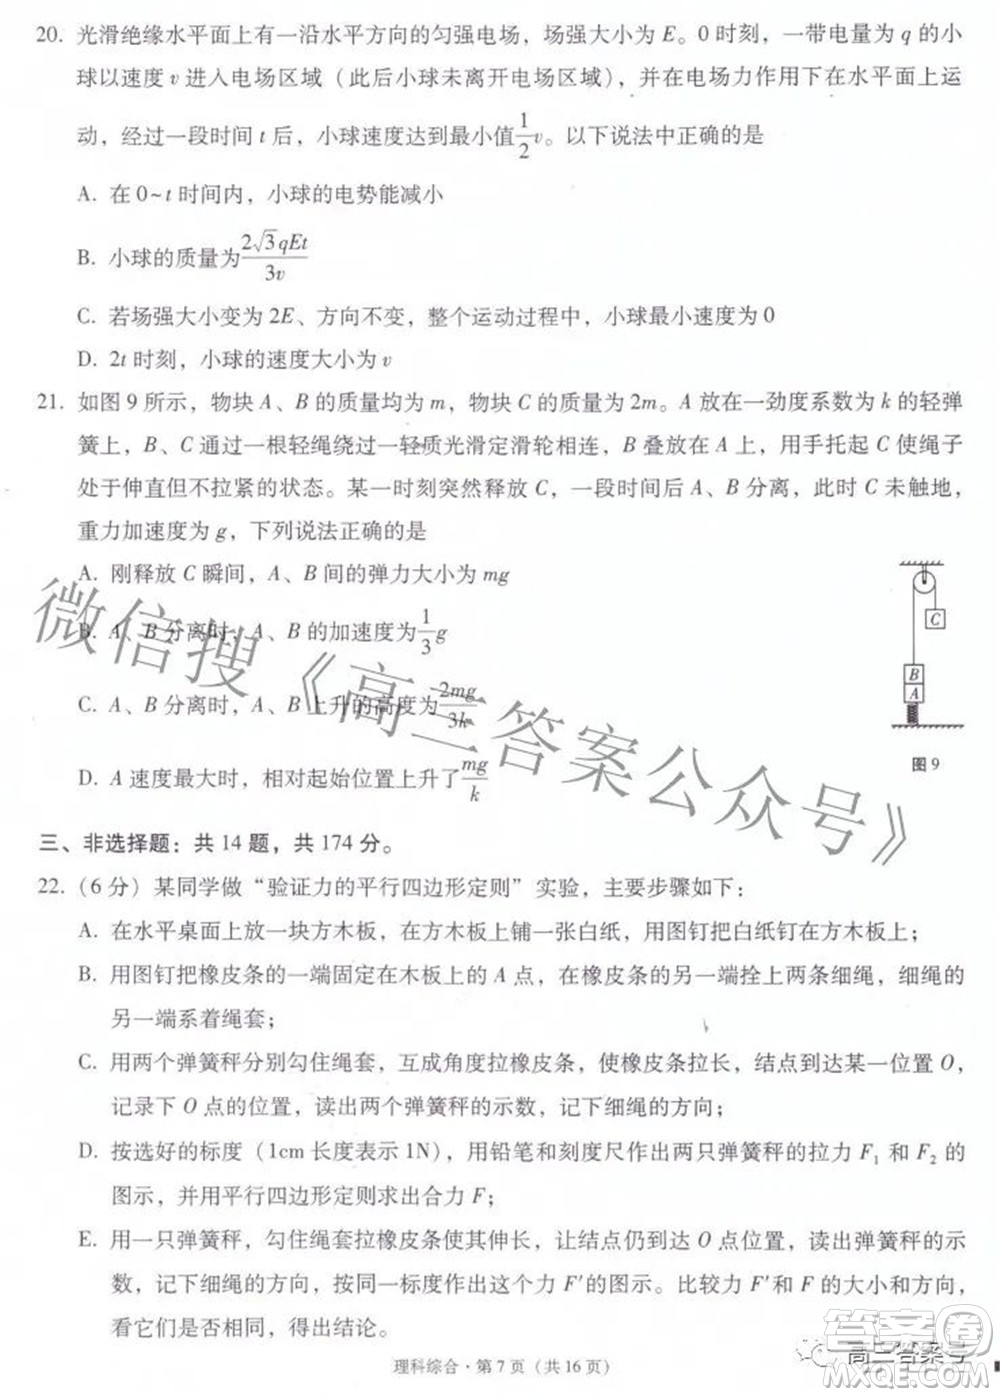 20. 光滑绝缘水平面上有一沿水平方向的匀强电场，场强大小为 E。0 时刻，一带电量为 q 的小
球以速度 v 进入电场区域（此后小球未离开电场区域），并在电场力作用下在水平面上运
动，经过一段时间 t 后，小球速度达到最小值 1/2 v。以下说法中正确的是
A. 在 0~t 时间内，小球的电势能减小
B. 小球的质量为 2√3qEt/3v
C. 若场强大小变为 2E、方向不变，整个运动过程中，小球最小速度为 0
D. 2t 时刻，小球的速度大小为 v
21. 如图 9 所示，物块 A、B 的质量均为 m，物块 C 的质量为 2m。A 放在一劲度系数为 k 的轻弹
簧上，B、C 通过一根轻绳绕过一轻质光滑定滑轮相连，B 叠放在 A 上，用手托起 C 使绳子
处于伸直但不拉紧的状态。某一时刻突然释放 C，一段时间后 A、B 分离，此时 C 未触地，
重力加速度为 g，下列说法正确的是
A. 刚释放 C 瞬间，A、B 间的弹力大小为 mg
B. A、B 分离时，A、B 的加速度为 1/3 g
C. A、B 分离时，A、B 上升的高度为 2mg/3k
D. A 速度最大时，相对起始位置上升了 mg/k
C
B
A
图 9
三、非选择题：共 14 题，共 174 分。
22.（6 分）某同学做“验证力的平行四边形定则”实验，主要步骤如下：
A. 在水平桌面上放一块方木板，在方木板上铺一张白纸，用图钉把白纸钉在方木板上；
B. 用图钉把橡皮条的一端固定在木板上的 A 点，在橡皮条的另一端拴上两条细绳，细绳的
另一端系着绳套；
C. 用两个弹簧秤分别勾住绳套，互成角度拉橡皮条，使橡皮条拉长，结点到达某一位置 O，
记录下 O 点的位置，读出两个弹簧秤的示数，记下细绳的方向；
D. 按选好的标度（1cm 长度表示 1N），用铅笔和刻度尺作出两只弹簧秤的拉力 F₁ 和 F₂ 的
图示，并用平行四边形定则求出合力 F；
E. 用一只弹簧秤，勾住绳套拉橡皮条使其伸长，让结点仍到达 O 点位置，读出弹簧秤的示
数，记下细绳的方向，按同一标度作出这个力 F′的图示。比较力 F′和 F 的大小和方向，
看它们是否相同，得出结论。
理科综合·第 7 页（共 16 页）
微信搜《高三答案公众号》
高三答案号
答案圈
MXQE.COM